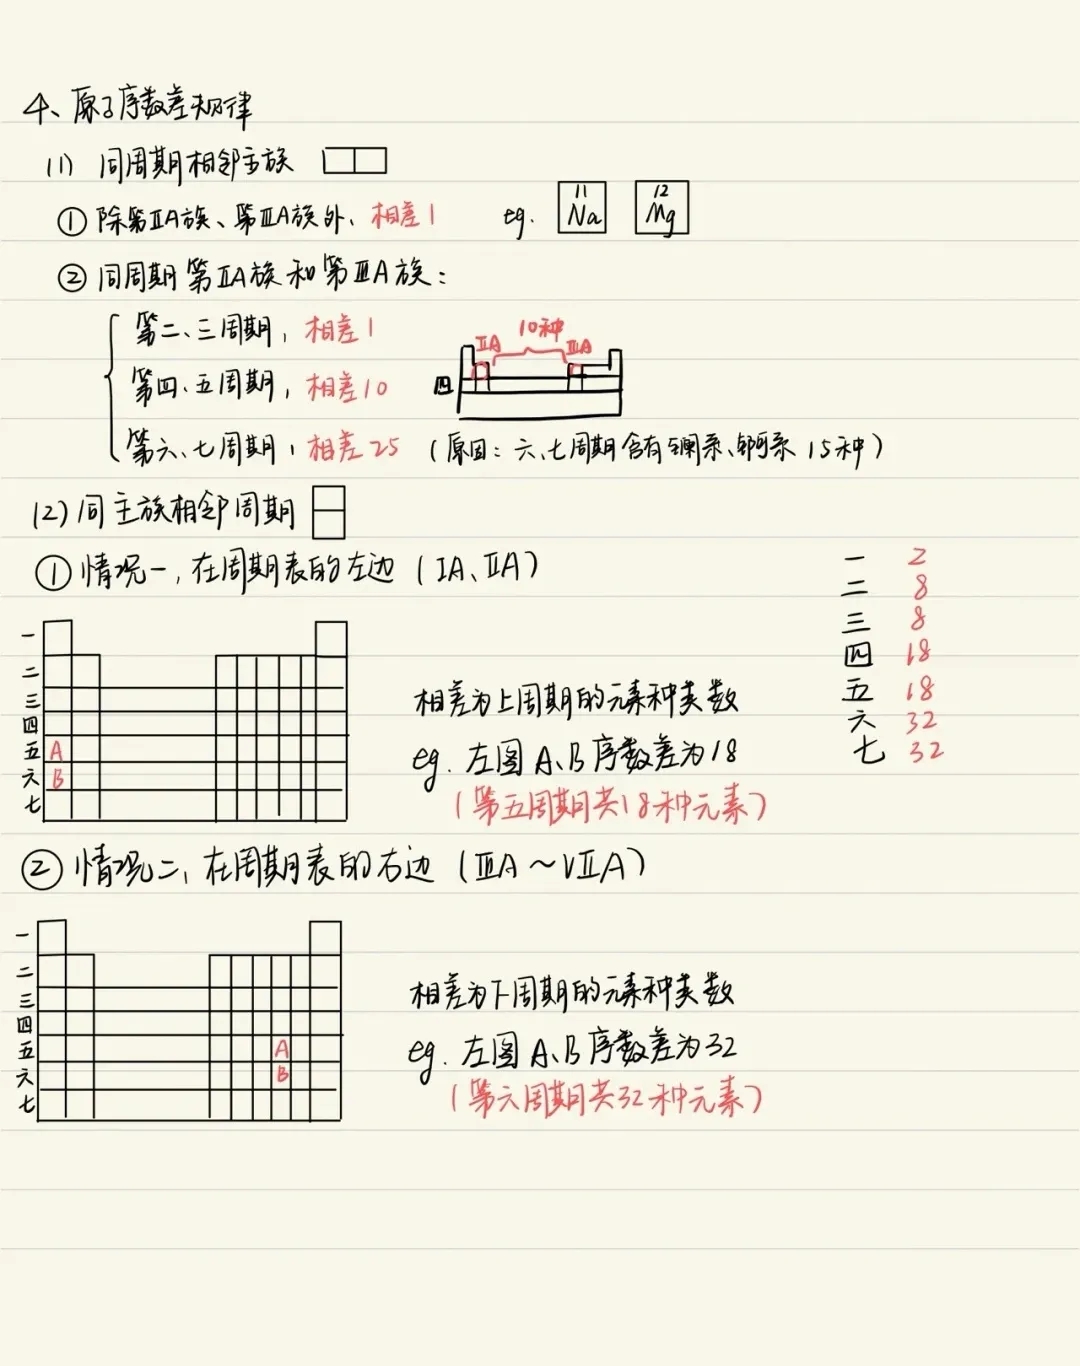 4、原子序数差规律
(1) 同周期相邻主族
① 除第ⅡA族、第ⅢA族外、相差1 eg. 11 Na 12 Mg
② 同周期第ⅡA族和第ⅢA族:
第二、三周期, 相差1
第四、五周期, 相差10
四 ⅡA 10种 ⅢA
第六、七周期, 相差25 (原因: 六、七周期含有镧系、锕系 15种)
(2) 同主族相邻周期
① 情况一, 在周期表的左边 (ⅠA、ⅡA)
一 2
二 8
三 8
四 18
五 18
六 32
七 32
一
二
三
四
五 A
六 B
七
相差为上周期的元素种类数
eg. 左图 A、B 序数差为18
(第五周期共18种元素)
② 情况二, 在周期表的右边 (ⅢA~ⅦA)
一
二
三
四
五 A
六 B
七
相差为下周期的元素种类数
eg. 左图 A、B 序数差为32
(第六周期共32种元素)